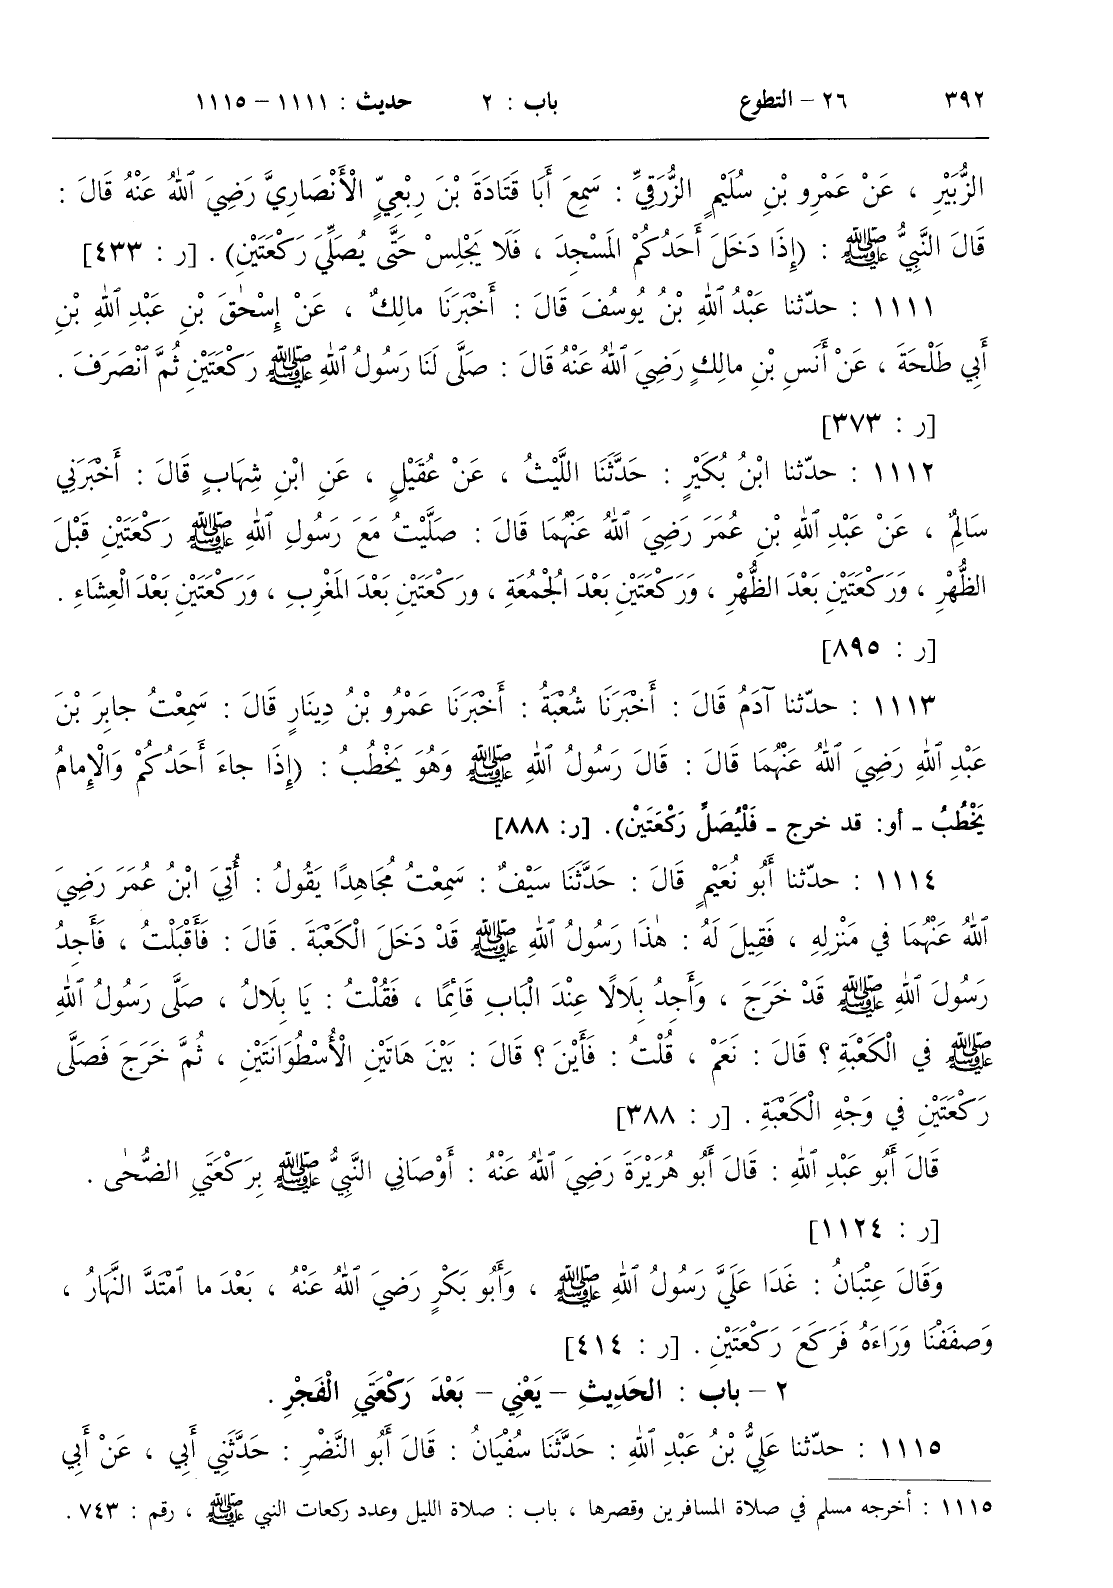 ٣٩٢ ٢٦ – التطوع باب : ٢ حديث : ١١١١ – ١١١٥
الزُّبَيْرِ ، عَنْ عَمْرِو بْنِ سُلَيْمٍ الزُّرَقِيِّ : سَمِعَ أَبَا قَتَادَةَ بْنَ رِبْعِيٍّ الْأَنْصَارِيَّ رَضِيَ اللهُ عَنْهُ قَالَ :
قَالَ النَّبِيُّ ﷺ : (إِذَا دَخَلَ أَحَدُكُمْ المَسْجِدَ ، فَلَا يَجْلِسْ حَتَّى يُصَلِّيَ رَكْعَتَيْنِ) . [ر : ٤٣٣]
١١١١ : حدّثنا عَبْدُ اللهِ بْنُ يُوسُفَ قَالَ : أَخْبَرَنَا مالِكٌ ، عَنْ إِسْحٰقَ بْنِ عَبْدِ اللهِ بْنِ
أَبِي طَلْحَةَ ، عَنْ أَنَسِ بْنِ مالِكٍ رَضِيَ اللهُ عَنْهُ قَالَ : صَلَّى لَنَا رَسُولُ اللهِ ﷺ رَكْعَتَيْنِ ثُمَّ ٱنْصَرَفَ .
[ر : ٣٧٣]
١١١٢ : حدّثنا ابْنُ بُكَيْرٍ : حَدَّثَنَا اللَّيْثُ ، عَنْ عُقَيْلٍ ، عَنِ ابْنِ شِهَابٍ قَالَ : أَخْبَرَنِي
سَالِمٌ ، عَنْ عَبْدِ اللهِ بْنِ عُمَرَ رَضِيَ اللهُ عَنْهُمَا قَالَ : صَلَّيْتُ مَعَ رَسُولِ اللهِ ﷺ رَكْعَتَيْنِ قَبْلَ
الظُّهْرِ ، وَرَكْعَتَيْنِ بَعْدَ الظُّهْرِ ، وَرَكْعَتَيْنِ بَعْدَ الجُمُعَةِ ، وَرَكْعَتَيْنِ بَعْدَ المَغْرِبِ ، وَرَكْعَتَيْنِ بَعْدَ الْعِشَاءِ .
[ر : ٨٩٥]
١١١٣ : حدّثنا آدَمُ قَالَ : أَخْبَرَنَا شُعْبَةُ : أَخْبَرَنَا عَمْرُو بْنُ دِينَارٍ قَالَ : سَمِعْتُ جابِرَ بْنَ
عَبْدِ اللهِ رَضِيَ اللهُ عَنْهُمَا قَالَ : قَالَ رَسُولُ اللهِ ﷺ وَهُوَ يَخْطُبُ : (إِذَا جاءَ أَحَدُكُمْ وَالْإِمامُ
يَخْطُبُ ـ أو: قد خرج ـ فَلْيُصَلِّ رَكْعَتَيْنِ). [ر: ٨٨٨]
١١١٤ : حدّثنا أَبُو نُعَيْمٍ قَالَ : حَدَّثَنَا سَيْفٌ : سَمِعْتُ مُجَاهِدًا يَقُولُ : أُتِيَ ابْنُ عُمَرَ رَضِيَ
اللهُ عَنْهُمَا في مَنْزِلِهِ ، فَقِيلَ لَهُ : هٰذَا رَسُولُ اللهِ ﷺ قَدْ دَخَلَ الْكَعْبَةَ . قَالَ : فَأَقْبَلْتُ ، فَأَجِدُ
رَسُولَ اللهِ ﷺ قَدْ خَرَجَ ، وَأَجِدُ بِلَالًا عِنْدَ الْبَابِ قَائِمًا ، فَقُلْتُ : يَا بِلَالُ ، صَلَّى رَسُولُ اللهِ
ﷺ في الْكَعْبَةِ ؟ قَالَ : نَعَمْ ، قُلْتُ : فَأَيْنَ ؟ قَالَ : بَيْنَ هَاتَيْنِ الْأُسْطُوَانَتَيْنِ ، ثُمَّ خَرَجَ فَصَلَّى
رَكْعَتَيْنِ في وَجْهِ الْكَعْبَةِ . [ر : ٣٨٨]
قَالَ أَبُو عَبْدِ اللهِ : قَالَ أَبُو هُرَيْرَةَ رَضِيَ اللهُ عَنْهُ : أَوْصَانِي النَّبِيُّ ﷺ بِرَكْعَتَيِ الضُّحٰى .
[ر : ١١٢٤]
وَقَالَ عِتْبَانُ : غَدَا عَلَيَّ رَسُولُ اللهِ ﷺ ، وَأَبُو بَكْرٍ رَضِيَ اللهُ عَنْهُ ، بَعْدَ ما ٱمْتَدَّ النَّهَارُ ،
وَصَفَفْنَا وَرَاءَهُ فَرَكَعَ رَكْعَتَيْنِ . [ر : ٤١٤]
٢ – باب : الحَدِيثِ – يَعْنِي – بَعْدَ رَكْعَتَيِ الْفَجْرِ .
١١١٥ : حدّثنا عَلِيُّ بْنُ عَبْدِ اللهِ : حَدَّثَنَا سُفْيَانُ : قَالَ أَبُو النَّضْرِ : حَدَّثَنِي أَبِي ، عَنْ أَبِي
١١١٥ : أخرجه مسلم في صلاة المسافرين وقصرها ، باب : صلاة الليل وعدد ركعات النبي ﷺ ، رقم : ٧٤٣ .